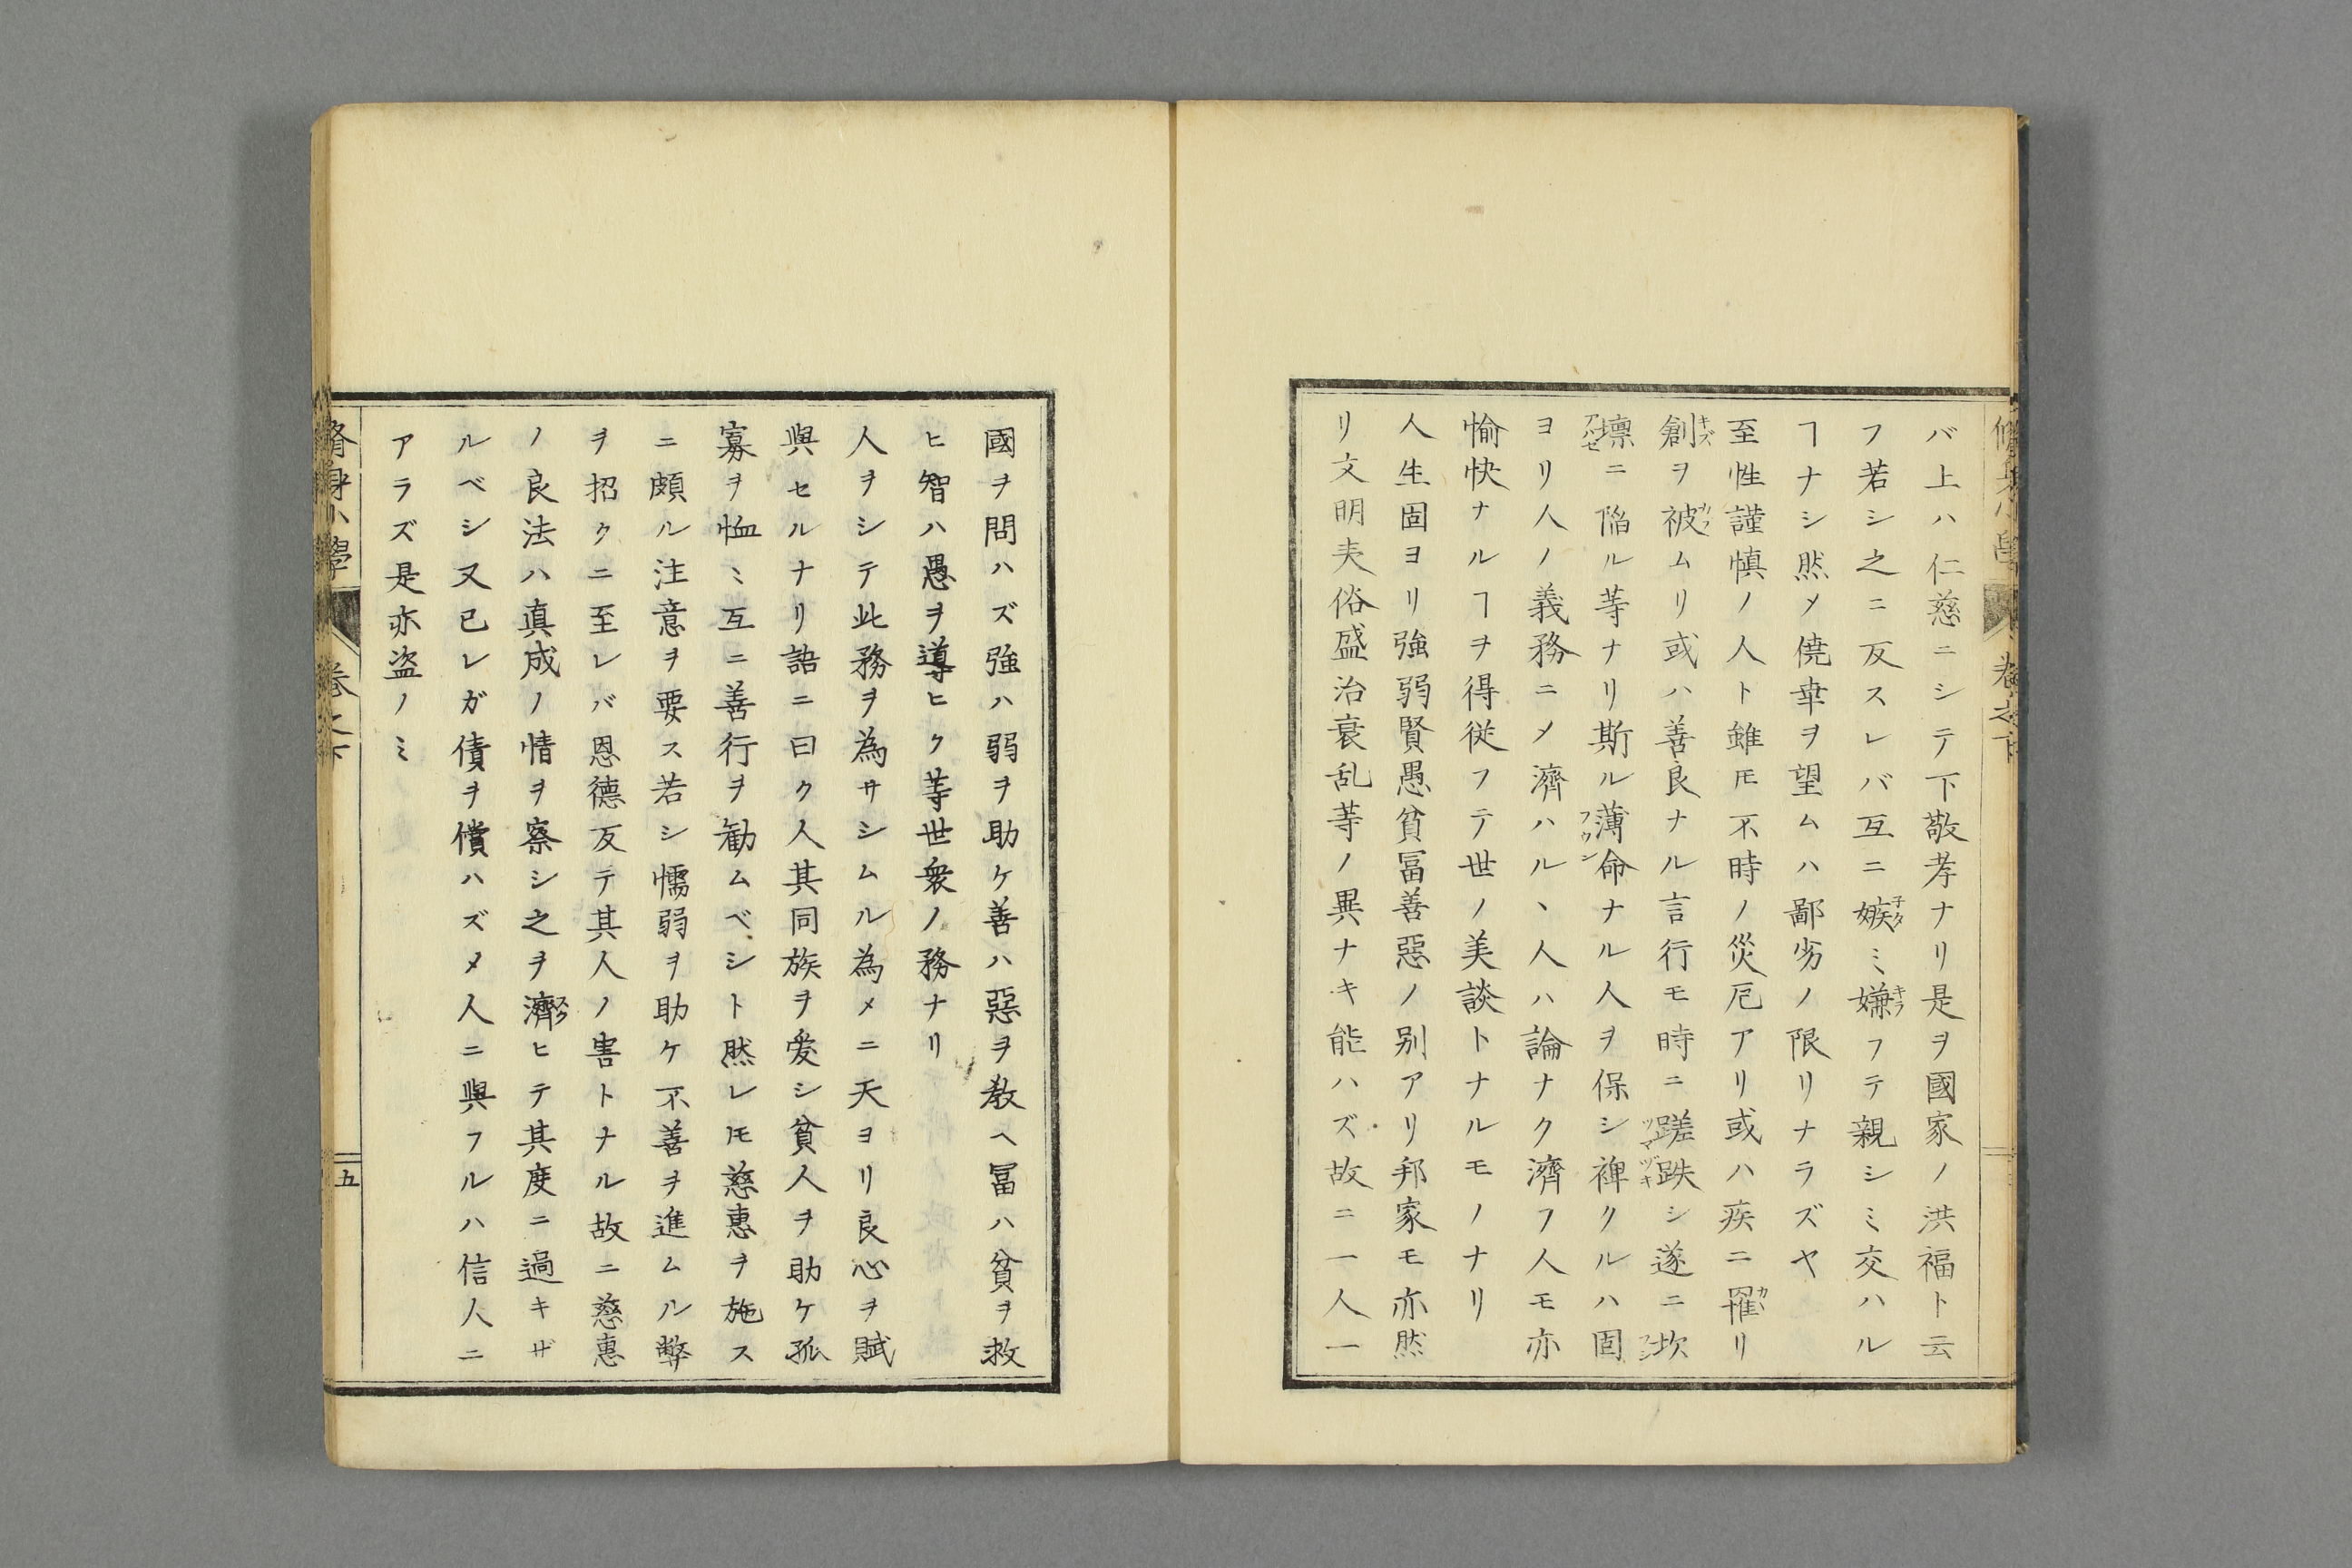 バ上ハ仁慈ニシテ下敬孝ナリ是ヲ國家ノ洪福ト云
フ若シ之ニ反スレバ互ニ嫉ミ嫌フテ親シミ交ハル
ヿナシ然〆僥幸ヲ望ムハ鄙劣ノ限リナラズヤ
至性謹慎ノ人ト雖𪜈不時ノ災厄アリ或ハ疾ニ罹リ
創ヲ被ムリ或ハ善良ナル言行モ時ニ蹉跌シ遂ニ坎
壈ニ陷ル等ナリ斯ル薄命ナル人ヲ保シ裨クルハ固
ヨリ人ノ義務ニ〆濟ハルヽ人ハ論ナク濟フ人モ亦
愉快ナルヿヲ得従フテ世ノ美談トナルモノナリ
人生固ヨリ強弱賢愚貧冨善惡ノ別アリ邦家モ亦然
リ文明夷俗盛治衰乱等ノ異ナキ能ハズ故ニ一人一
國ヲ問ハズ強ハ弱ヲ助ケ善ハ惡ヲ敎ヘ冨ハ貧ヲ救
ヒ智ハ愚ヲ導ヒク等世衆ノ務ナリ
人ヲシテ此務ヲ為サシムル為メニ天ヨリ良心ヲ賦
與セルナリ語ニ曰ク人其同族ヲ愛シ貧人ヲ助ケ孤
寡ヲ恤ミ互ニ善行ヲ勧ムベシト然レ𪜈慈惠ヲ施ス
ニ頗ル注意ヲ要ス若シ懦弱ヲ助ケ不善ヲ進ムル弊
ヲ招クニ至レバ恩德反テ其人ノ害トナル故ニ慈惠
ノ良法ハ真成ノ情ヲ察シ之ヲ濟ヒテ其度ニ過キザ
ルベシ又已レガ債ヲ償ハズ〆人ニ與フルハ信人ニ
アラズ是亦盗ノミ
脩身小學 卷之下 五